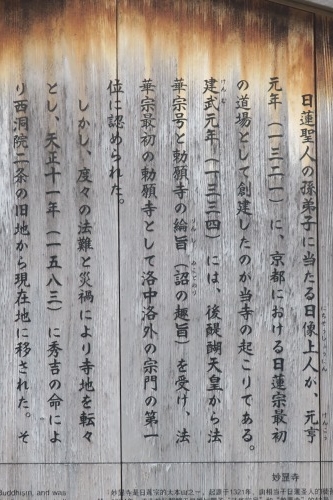 日蓮聖人の孫弟子に当たる日像上人が、元亨
元年（一三二一）に、京都における日蓮宗最初
の道場として創建したのが当寺の起こりである。
建武元年（一三三四）には、後醍醐天皇から法
華宗号と勅願寺の綸旨（詔の趣旨）を受け、法
華宗最初の勅願寺として洛中洛外の宗門の第一
位に認められた。
しかし、度々の法難と災禍により寺地を転々
とし、天正十一年（一五八三）に秀吉の命によ
り西洞院二条の旧地から現在地に移された。そ
妙显寺
Buddhism, and was
妙显寺是日莲宗的大本山之一，起源于1321年，由相当于日莲圣人的徒